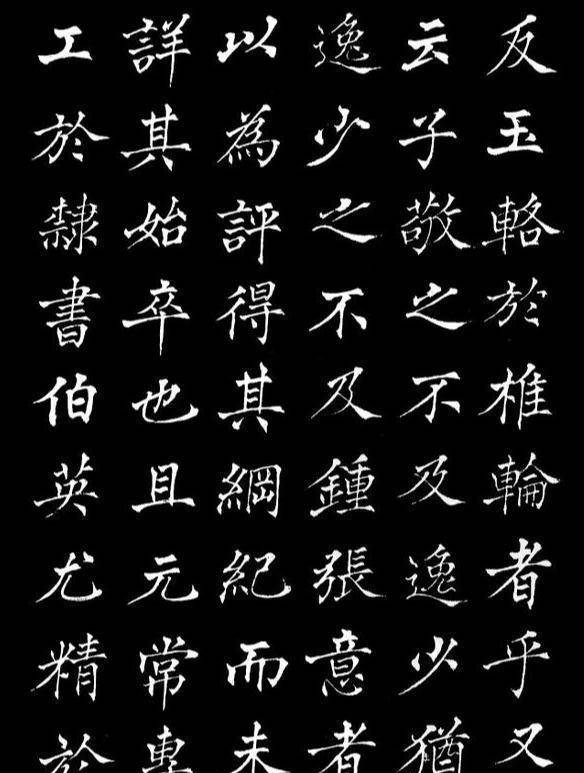 反玉輅於椎輪者乎又
云子敬之不及逸少猶
逸少之不及鍾張意者
以為評得其綱紀而未
詳其始卒也且元常專
工於隸書伯英尤精於